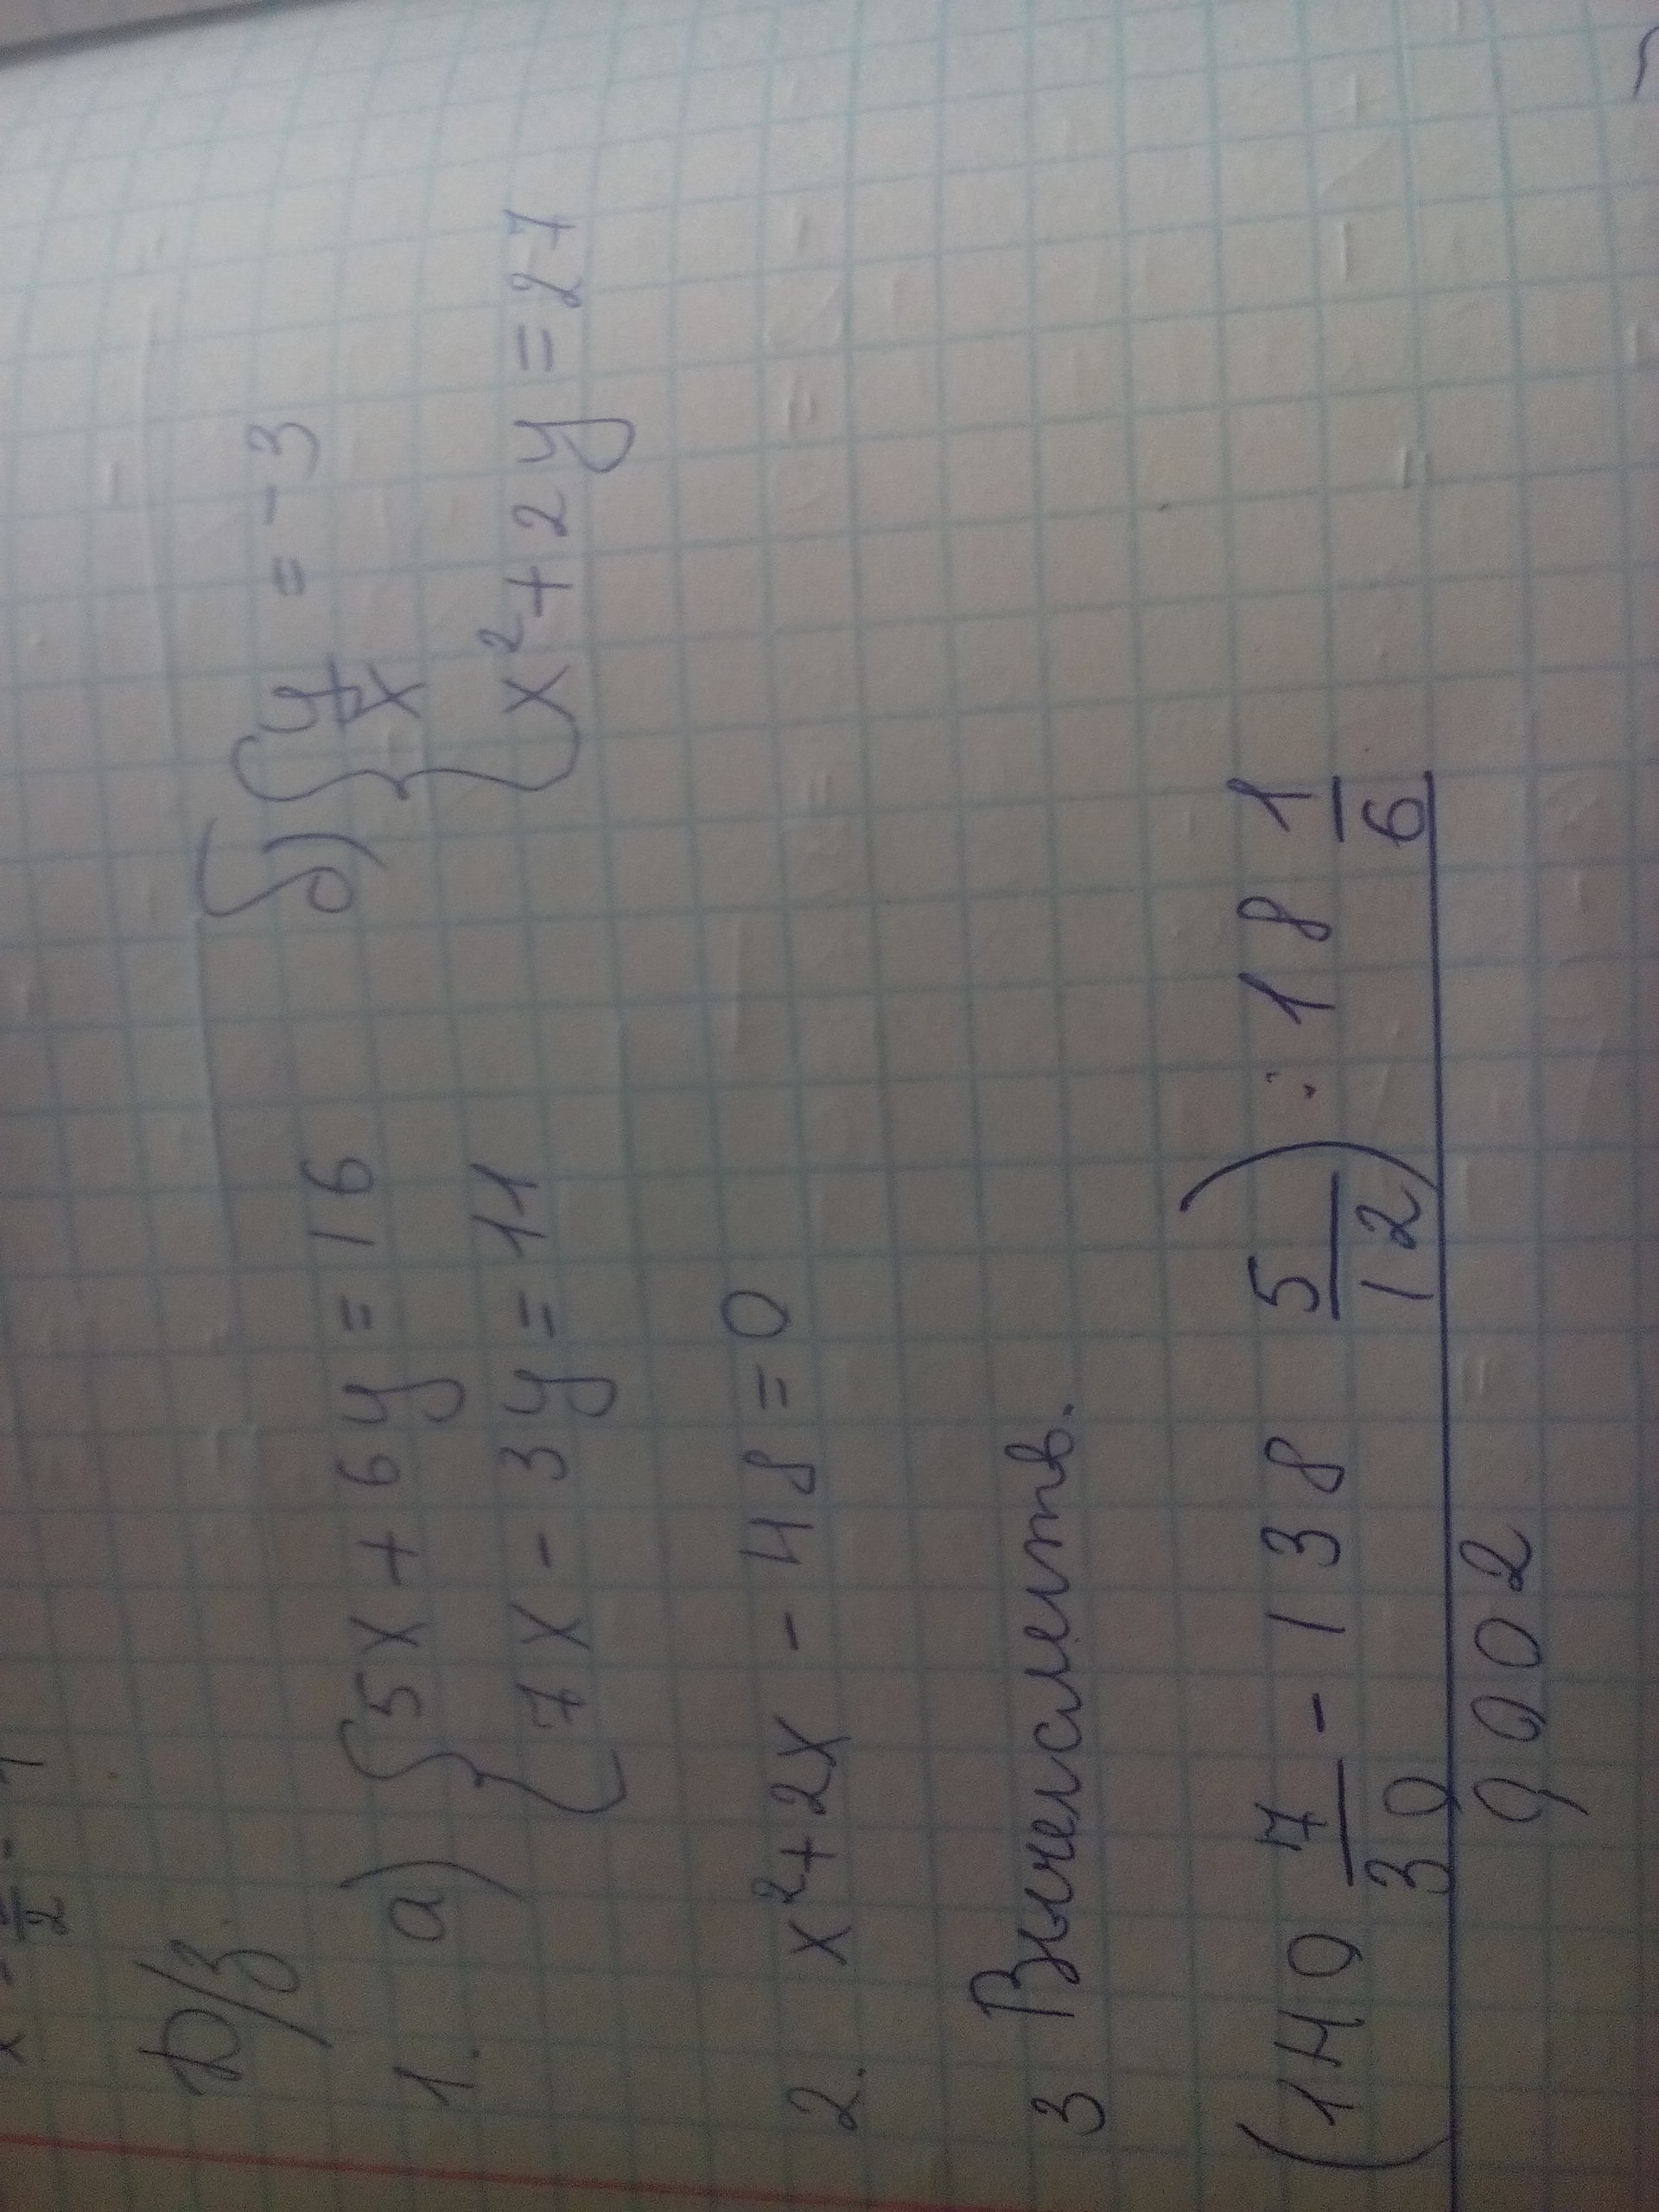 Д/З
1. а) { 5x + 6y = 16
7x - 3y = 11
б) { y/x = -3
x² + 2y = 27
2. x² + 2x - 48 = 0
3 Вычислить.
(149 7/30 - 138 5/12) : 18 1/6
9002